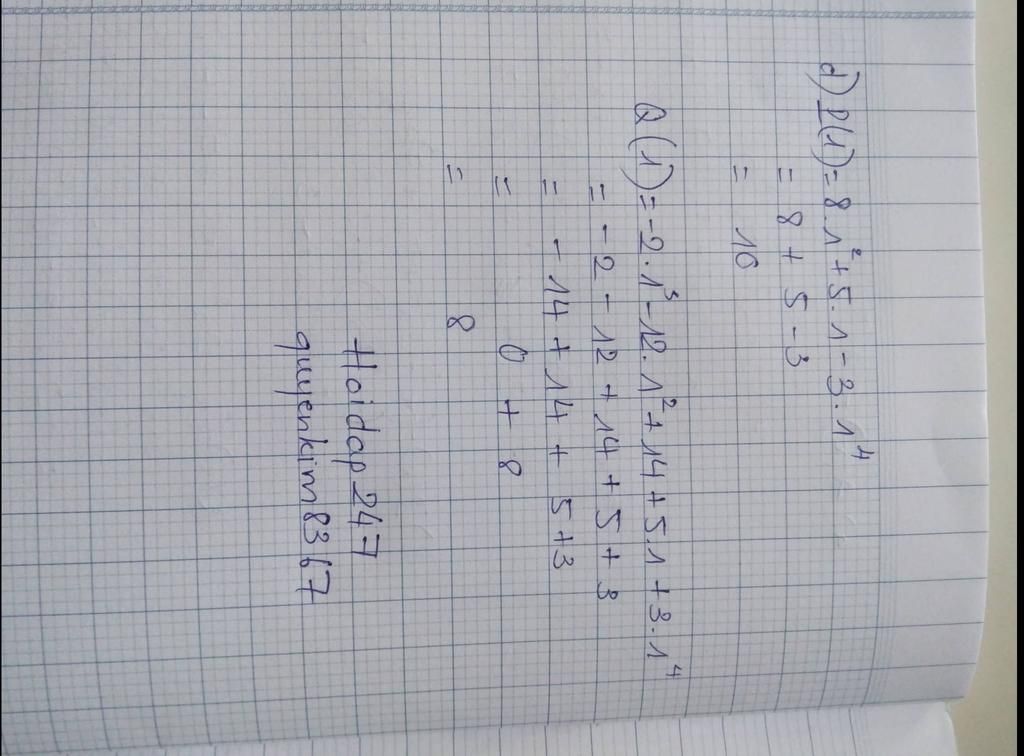 d) P(1) = 8.1² + 5.1 - 3.1⁴
= 8 + 5 - 3
= 10
Q(1) = -2.1³ - 12.1² + 14 + 5.1 + 3.1⁴
= -2 - 12 + 14 + 5 + 3
= -14 + 14 + 5 + 3
= 0 + 8
= 8
Hoidap247
quyenkim8367